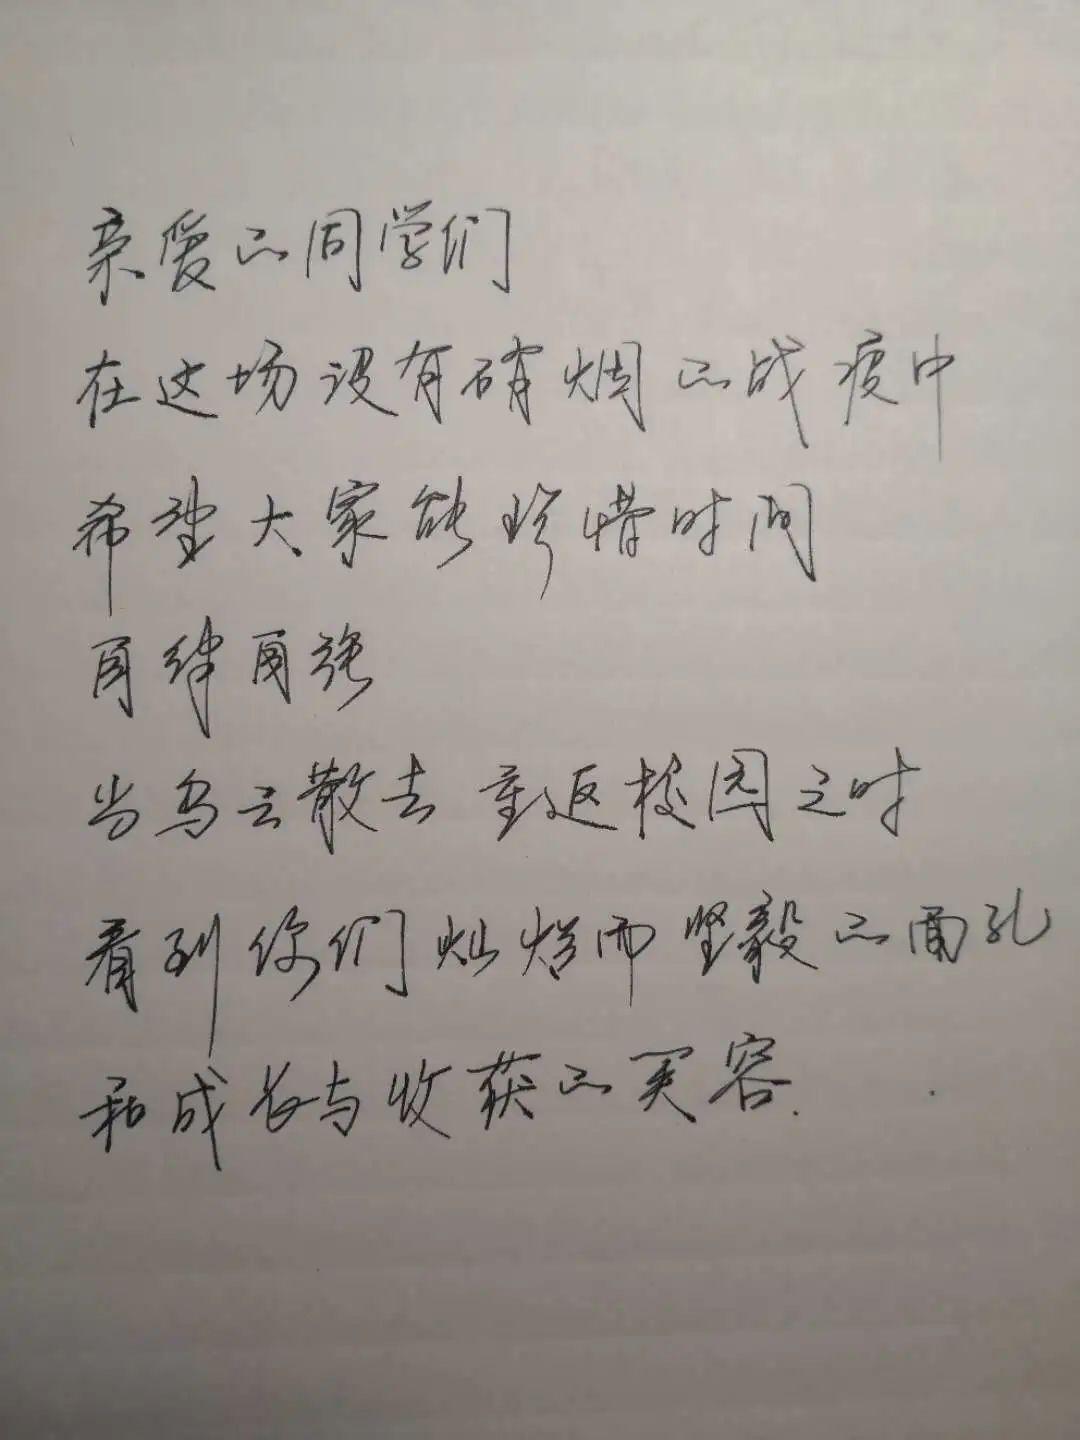 亲爱的同学们
在这场没有硝烟的战疫中
希望大家能珍惜时间
自律自强
当乌云散去 重返校园之时
看到你们灿烂而坚毅的面孔
和成长与收获的笑容.